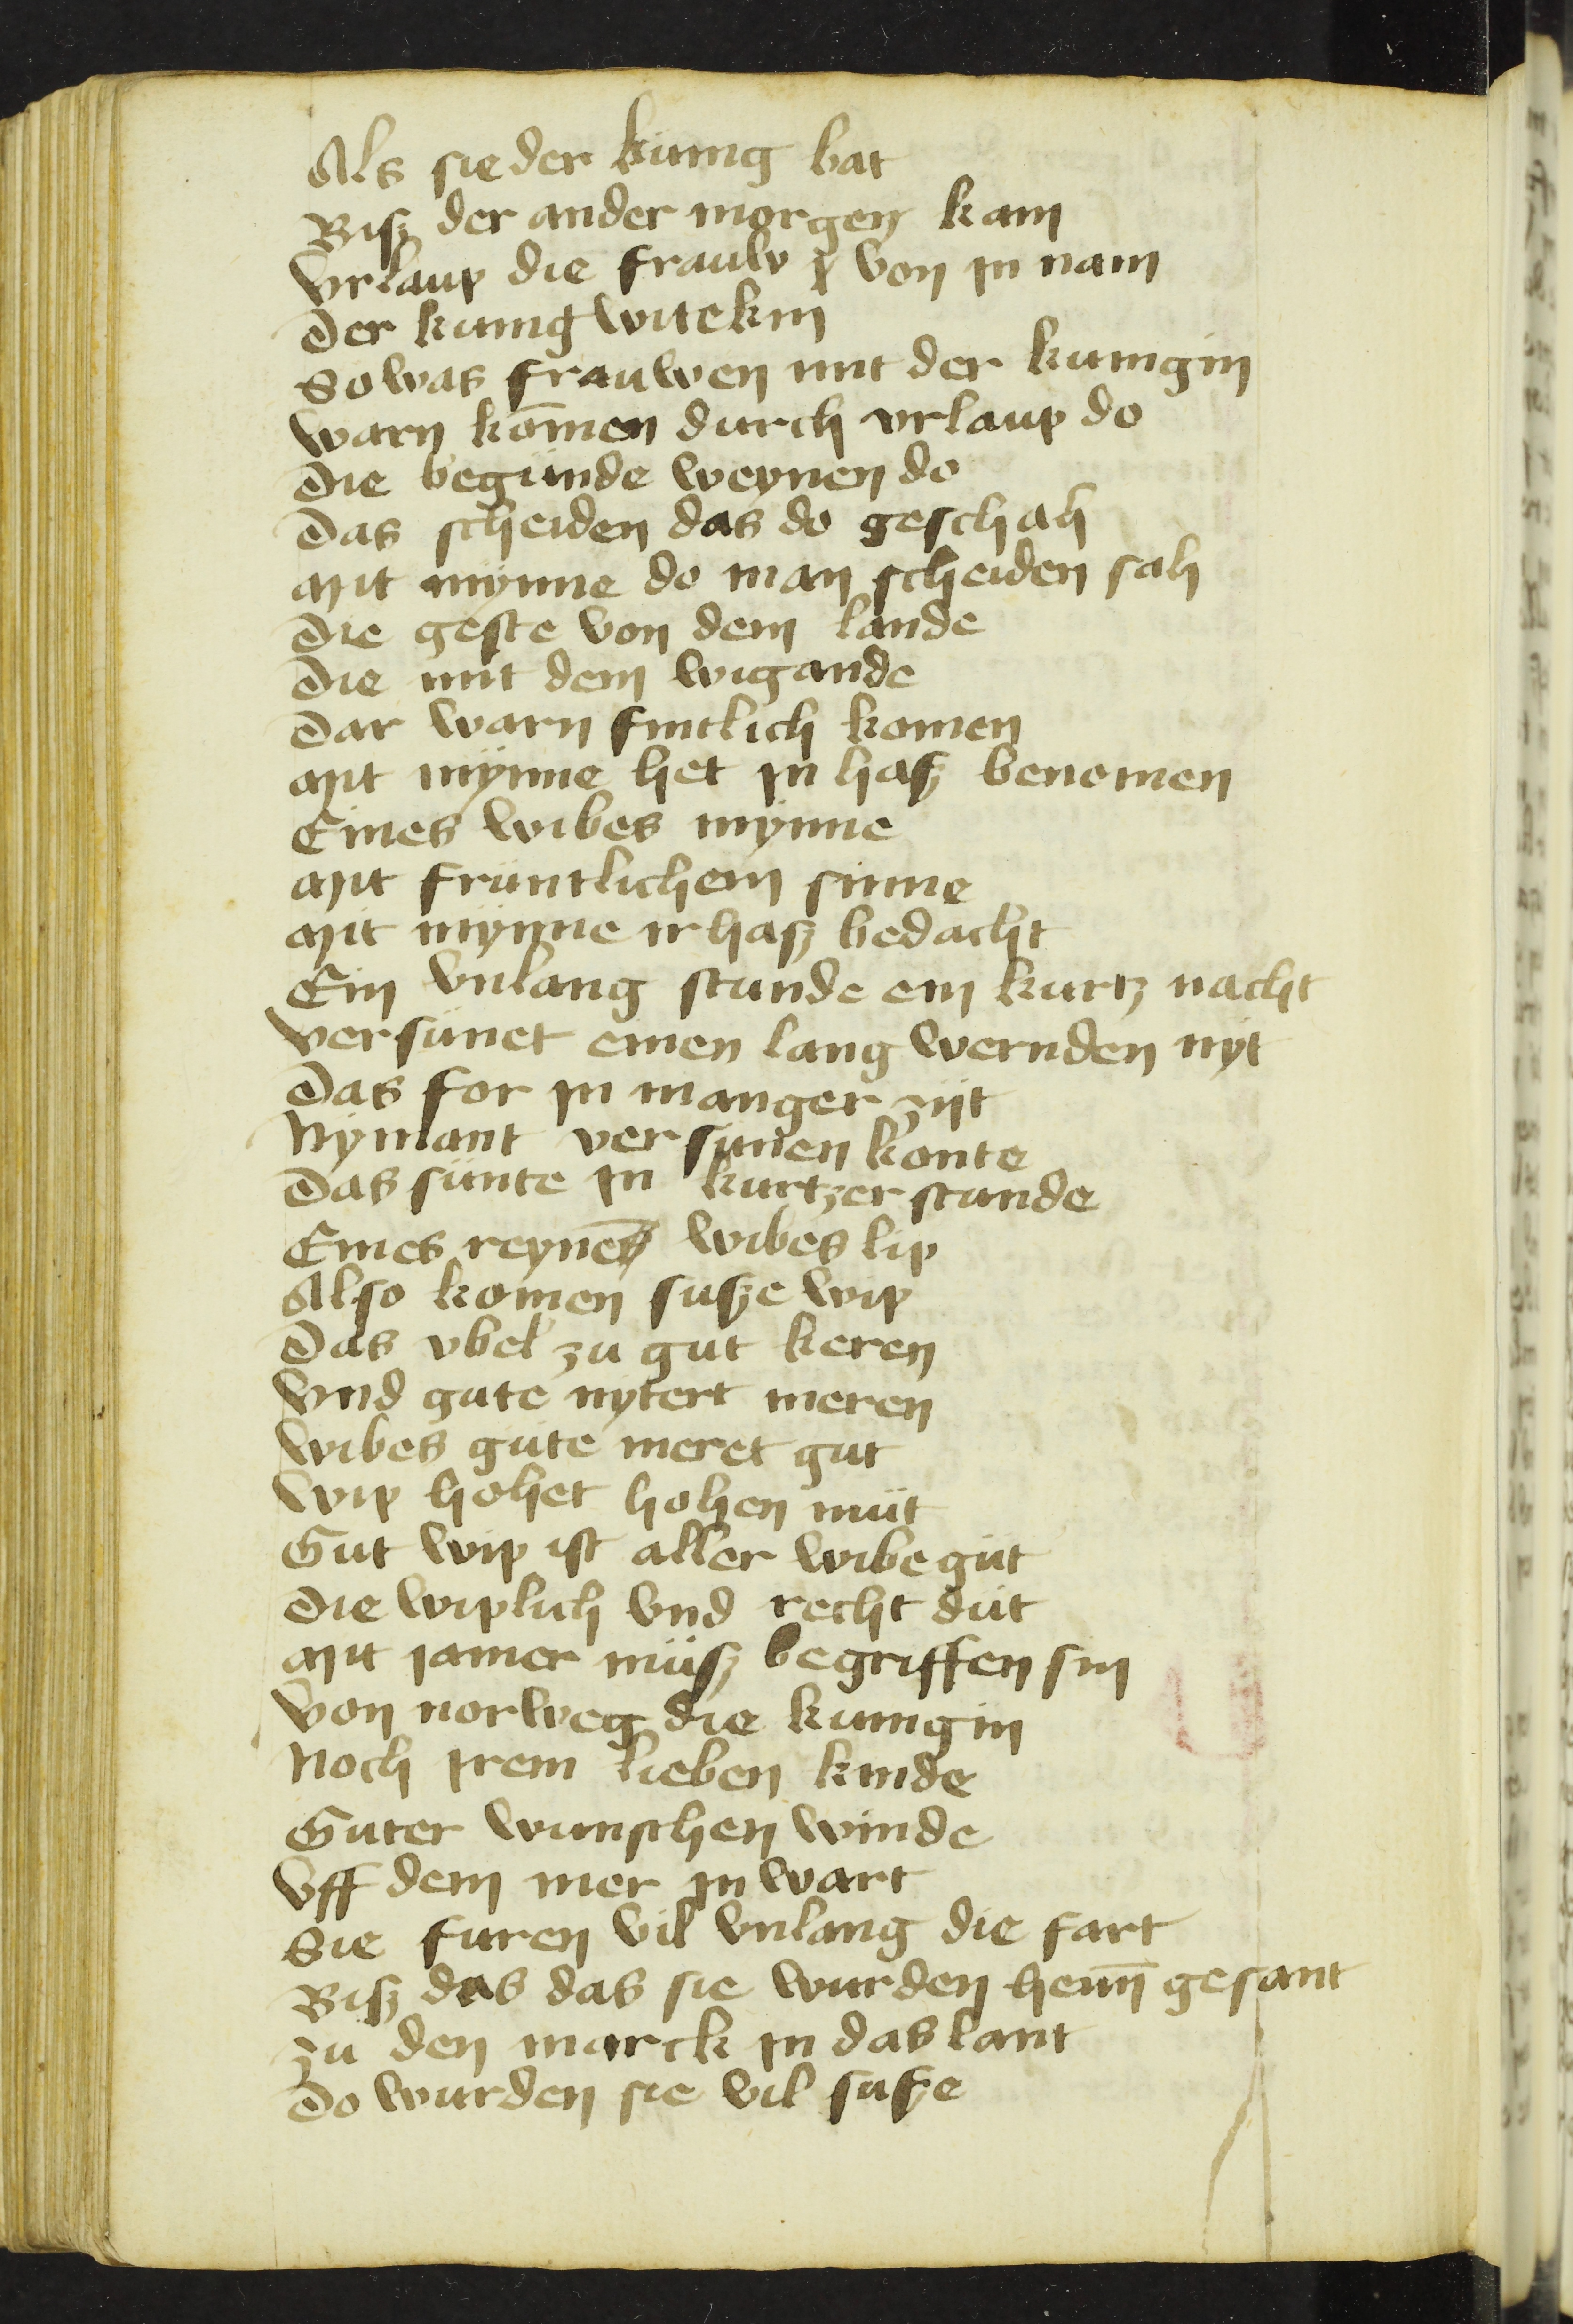 Als sie der kunig bat
Bisz der ander morgen kam
Vrlaup die frauw von in nam
Der kunig witekin
So was frauwen mit der kunigin
Warn kōmen durch vrlaup do
Die begunde weynen do
Das scheiden das do geschah
Mit mynne do man scheiden sah
Die geste von dem lande
Die mit dem wigande
Dar warn fintlich komen
Mit mynne het in hasz benomen
Eines wibes mynne
Mit fruntlichem sinne
Mit mynne ir hasz bedacht
Ein vnlang stunde ein kurtz nacht
Versünet einen lang wernden nyt
Das for in manger zijt
Nymant versunen konte
Das sünte in kurtzer stunde
Eines reynes wibes lip
Also komen susze wip
Das vbel zu gut keren
Vnd gute nytert meren
Wibes güte meret gut
Wip hohet hohen müt
Gut wip ist aller wibe gut
Die wiplich vnd recht düt
Mit jamer müsz begriffen sin
Von norweg die kunigin
Noch irem lieben kinde
Guter wunschen winde
Vff dem mer in wart
Sie furen vil vnlang die fart
Bisz das das sie wurden heim̄ gesant
Zu den marck in das lant
Do wurden sie vil susze